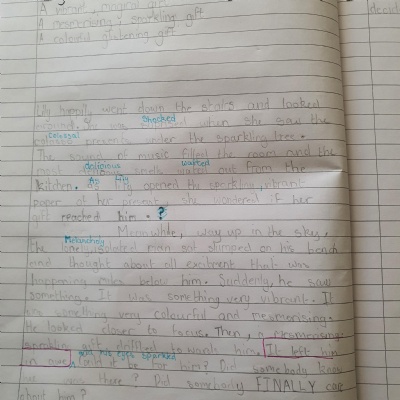 A vibrant, magical gift
A mesmerising, sparkling gift
A colourful glistening gift
decid
Lily happily went down the stairs and looked
around. She was when she saw the
Shocked
Colossal
presents under the sparkling tree.
The sound of music filled the room and the
delicious wafted
most smells out from the
kitchen. As Lily opened the sparkling, vibrant
As Lily
paper of her present, she wondered if her
gift reached him. ?
Meanwhile, way up in the sky,
Melancholy
the lonely, isolated man sat slumped on his bench
and thought about all excitment that was
happening miles below him. Suddenly, he saw
something. It was something very vibrant. It
was something very colourful and mesmerising.
He looked closer to focus. Then, a mesmerising
sparklin gift drifted towards him. It left him
in awe and his eyes sparkled Could it be for him? Did somebody know
he was there? Did somebody FINALLY care
about him?